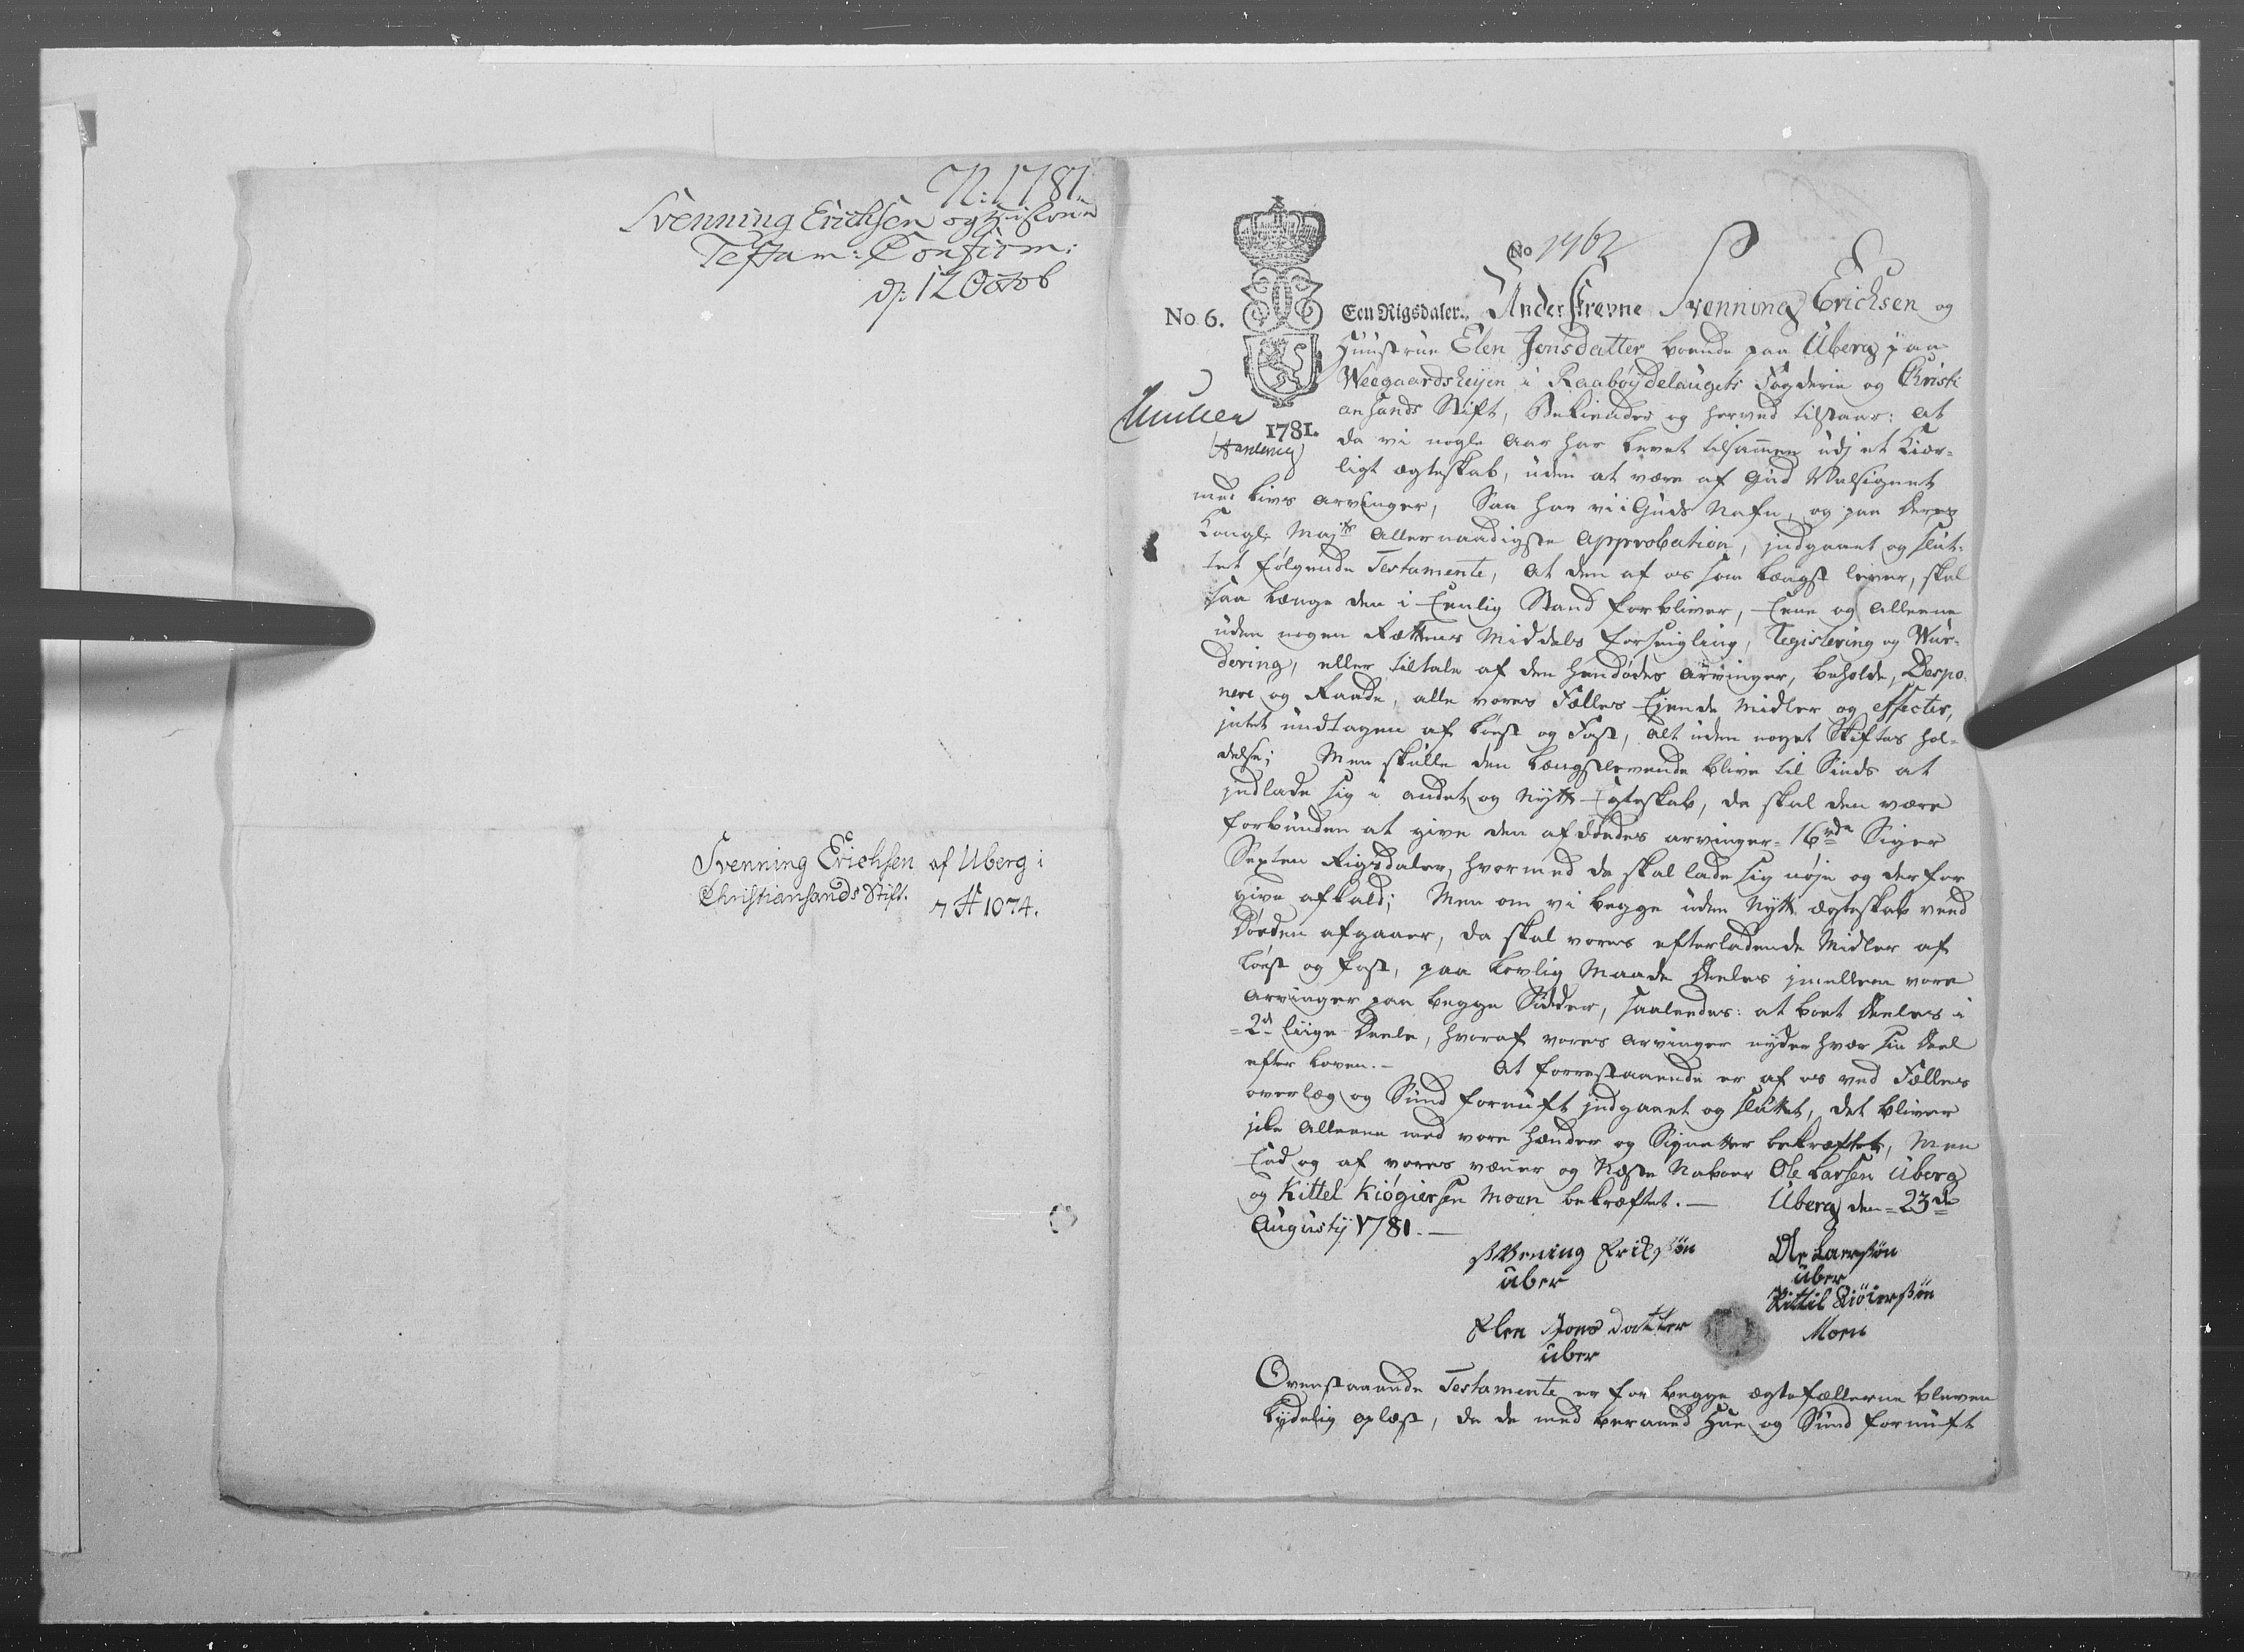 N: 1781.
Svenning Erichsen og Hustrue
Testam: Confirm:
d: 12 Octob
Svenning Erichsen af Uberg i
Christiansands Stift.
7 A 1074.
No 1962
No 6.
Een Rigsdaler. Underskrevne Svenning Erichsen og
Huustrue Elen Jonsdatter boende paa Uberg paa
Weegaardsheyen i Raabøydelaugets Fogderie og Christi
ansands Stift, Bekiender og herved tilstaar: at
1781.
da vi nogle Aar har levet tilsamen udj et Kier-
ligt ægteskab, uden at være af Gud Velsignet
med Livs Arvinger, Saa har vi i Guds Nafn, og paa Deres
Kongl: Maj:ts Allernaadigste Approbation, jndgaaet og slut-
tet følgende Testamente, At den af os som længst lever, skal
saa længe den i Eenlig Stand forbliver, Eene og Alleene
uden nogen Rættens Middels Forseigling, Registering og Wur-
dering, eller tiltale af den hendødes Arvinger, beholde, Despo-
nere og Raade, alle vores Fælles Ejende Midler og effecter,
jntet undtagen af Løst og Fast, alt uden noget Skiftes Hol-
delse; Men skulle den Længstlevende blive til Sinds at
jndlade sig i andet og Nytt Egteskab, da skal den være
forbunden at give den afdødes arvinger = 16 rd Siger
Sexten Rigsdaler, hvormed de skal lade sig nøje og derfor
give afkald; Men om vi begge uden Nytt ægteskab ved
Døden afgaaer, da skal vores efterladende Midler af
Løst og fast, paa Lovlig Maade Deeles jmellem vore
Arvinger paa begge Sidder, saaleedes: at boet Deeles i
= 2de Liige Deele, hvoraf vores Arvinger nyder hver sin Deel
efter Loven. — At forrestaaende er af os ved Fælles
overlæg og Sund fornuft jndgaaet og sluttet, det bliver
jcke Alleene med vore Hænder og Signetter bekræftet, Men
End og af vores væner og Næste Naboer Ole Larsen Uberg
og Kittel Kiøgiersen Moen bekræftet. — Uberg den = 23de
Augustij 1781. —
Svening Erichsøn
uber
Ole Larssøn
uber
Kittil Kiöiersøn
Moen
Elen Jons datter
uber
Ovenstaaende Testamente er for begge ægtefællerne bleven
Lydelig oplæst, da de med beraad Hue og Sund fornuft